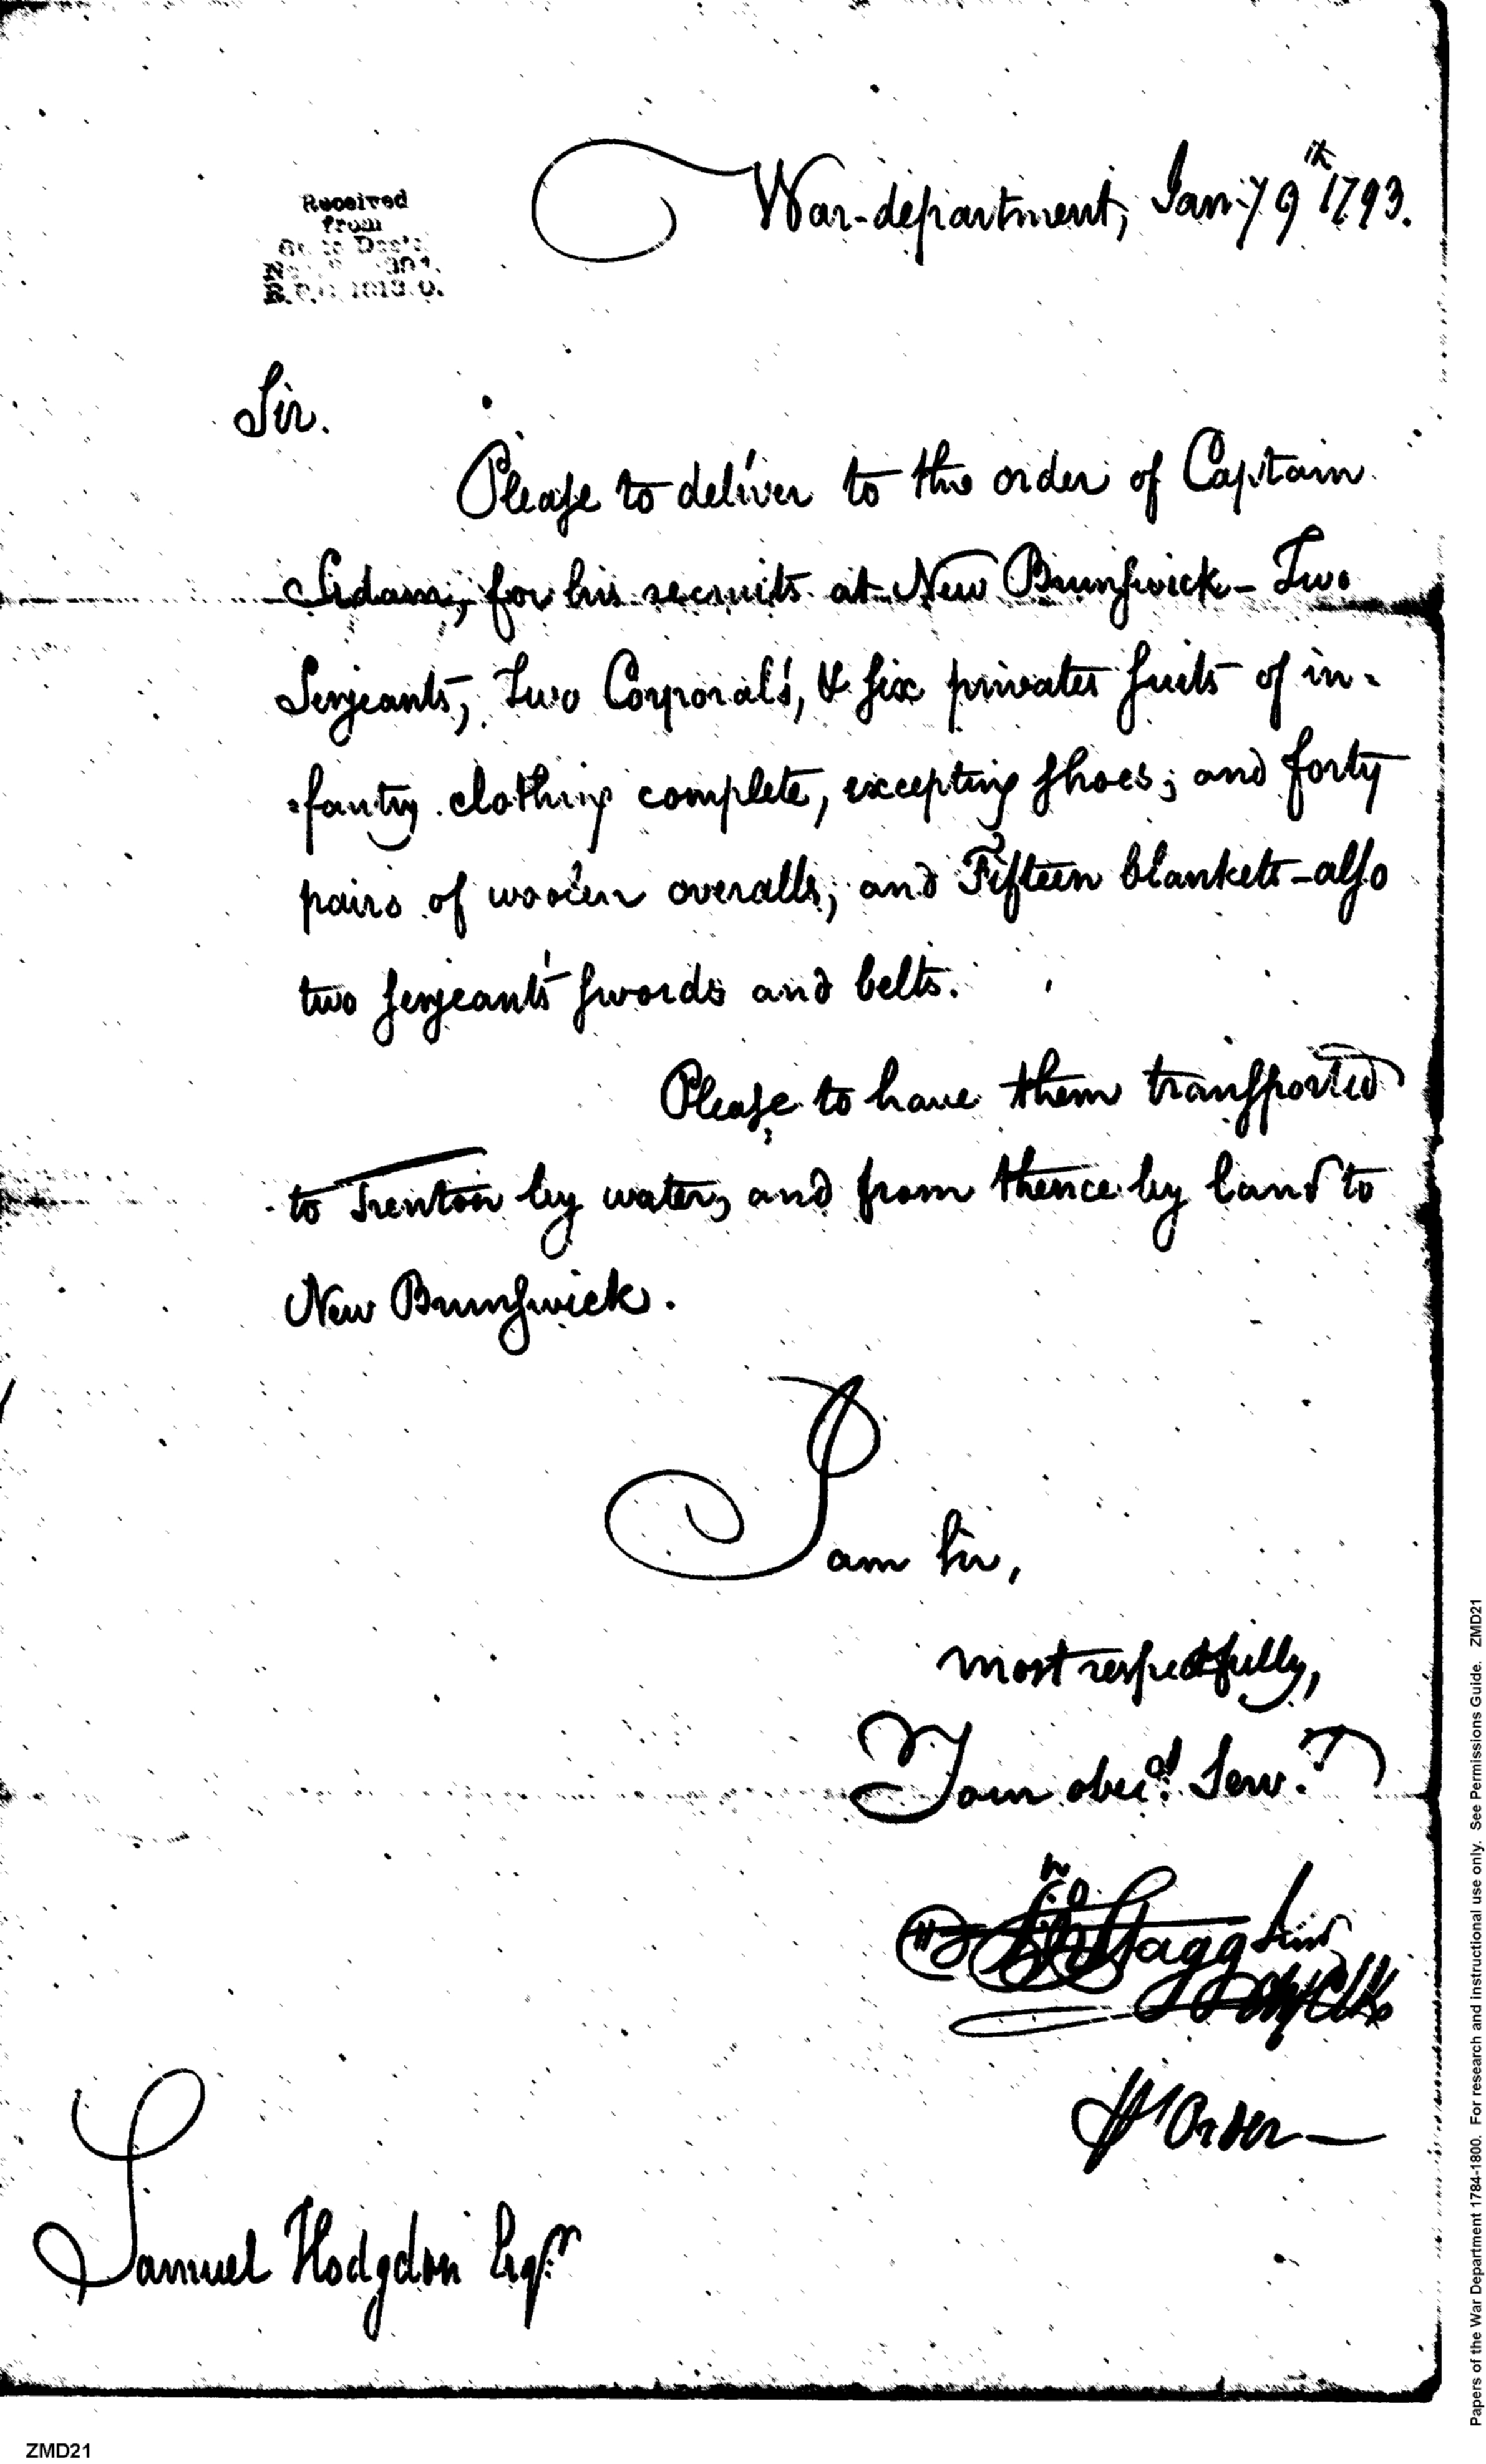 War-department, Jan:y 9th 1793.
Received
from
Sir.
Please to deliver to the order of Captain
for his recruits at New Brunswick - Two
Serjeants, Two Corporal's, & six privates suits of in=
=fantry clothing complete, excepting shoes; and forty
pairs of woolen overalls, and Fifteen blankets - also
two serjeants' swords and belts.
Please to have them transported
to Trenton by water, and from thence by land to
New Brunswick.
I am Sir,
most respectfully,
Your obed. Serv.t
Jno Stagg Junr
Chf Clk
Samuel Hodgdon Esqr
Papers of the War Department 1784-1800. For research and instructional use only. See Permissions Guide. ZMD21
ZMD21